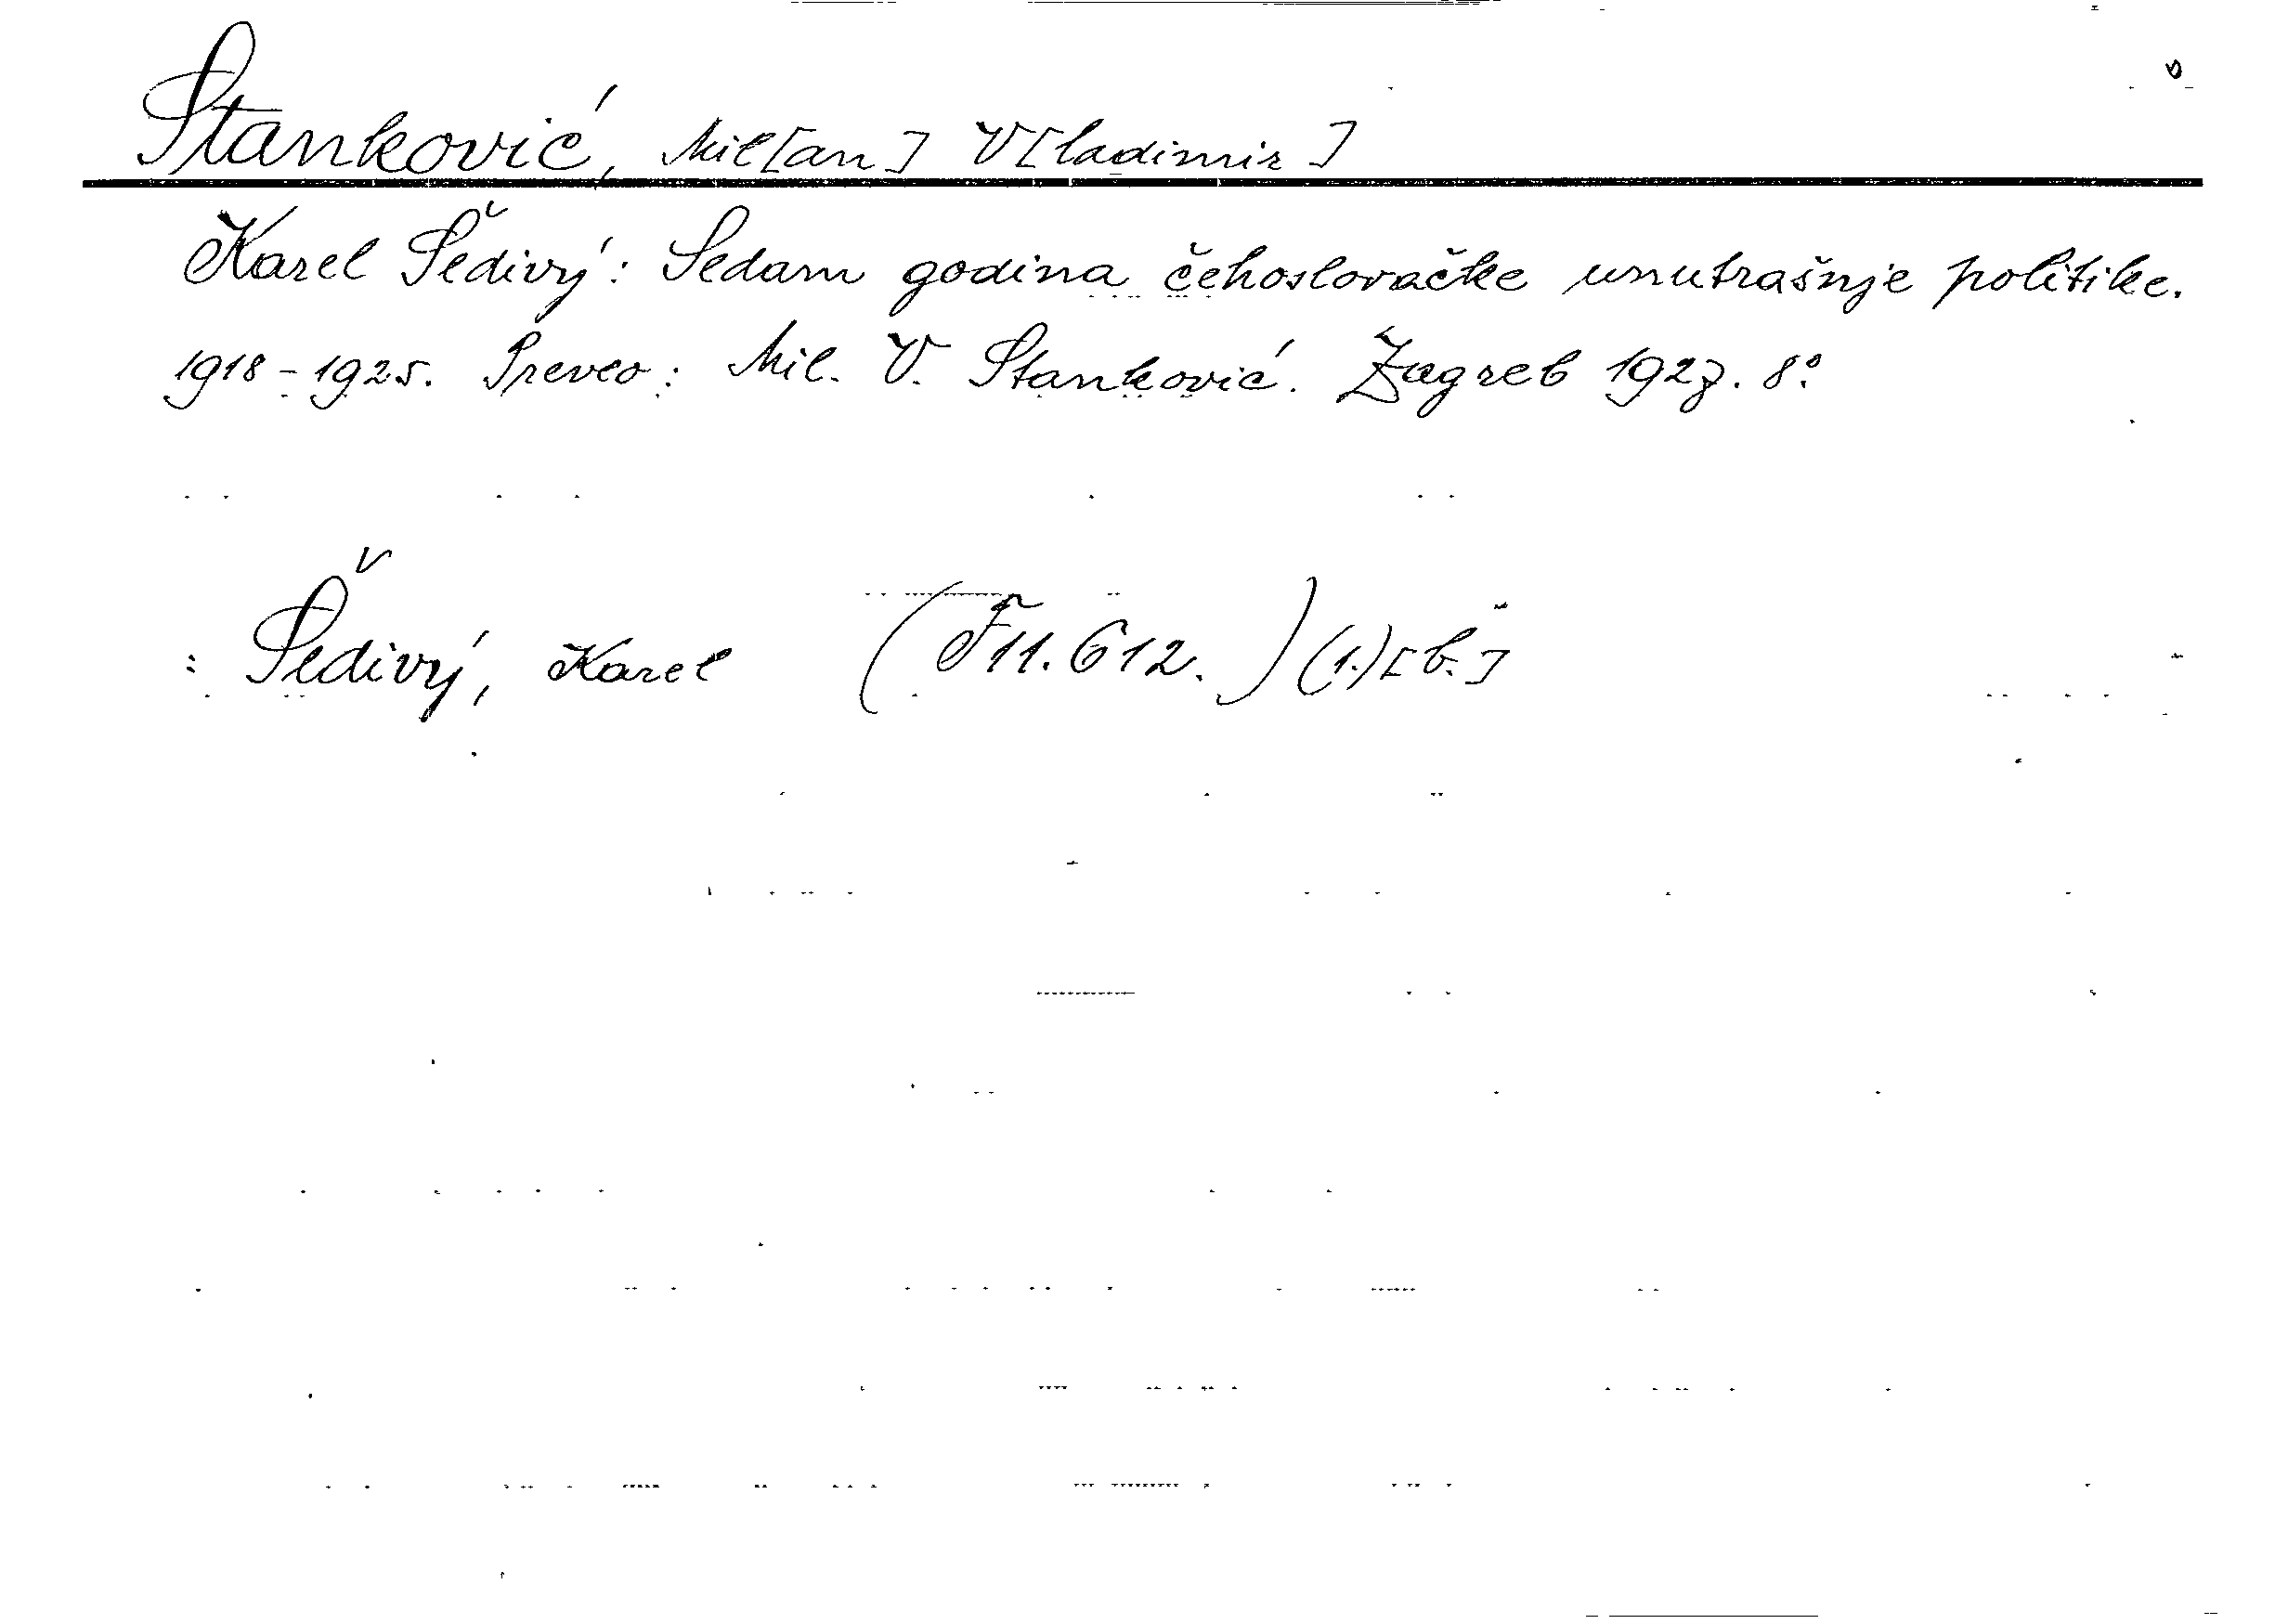 Stanković, Mil[an] V[ladimir]
Karel Šedivý: Sedam godina čehoslovačke unutrašnje politike.
1918-1925. Preveo: Mil. V. Stanković. Zagreb 1927. 8°.
: Šedivý, Karel (F 11.612.) (1.) [b.]